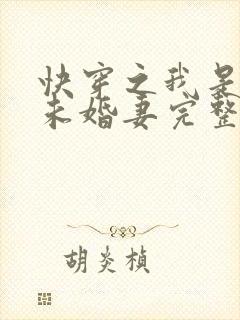 快穿之我是
未婚妻完整
胡炎桢